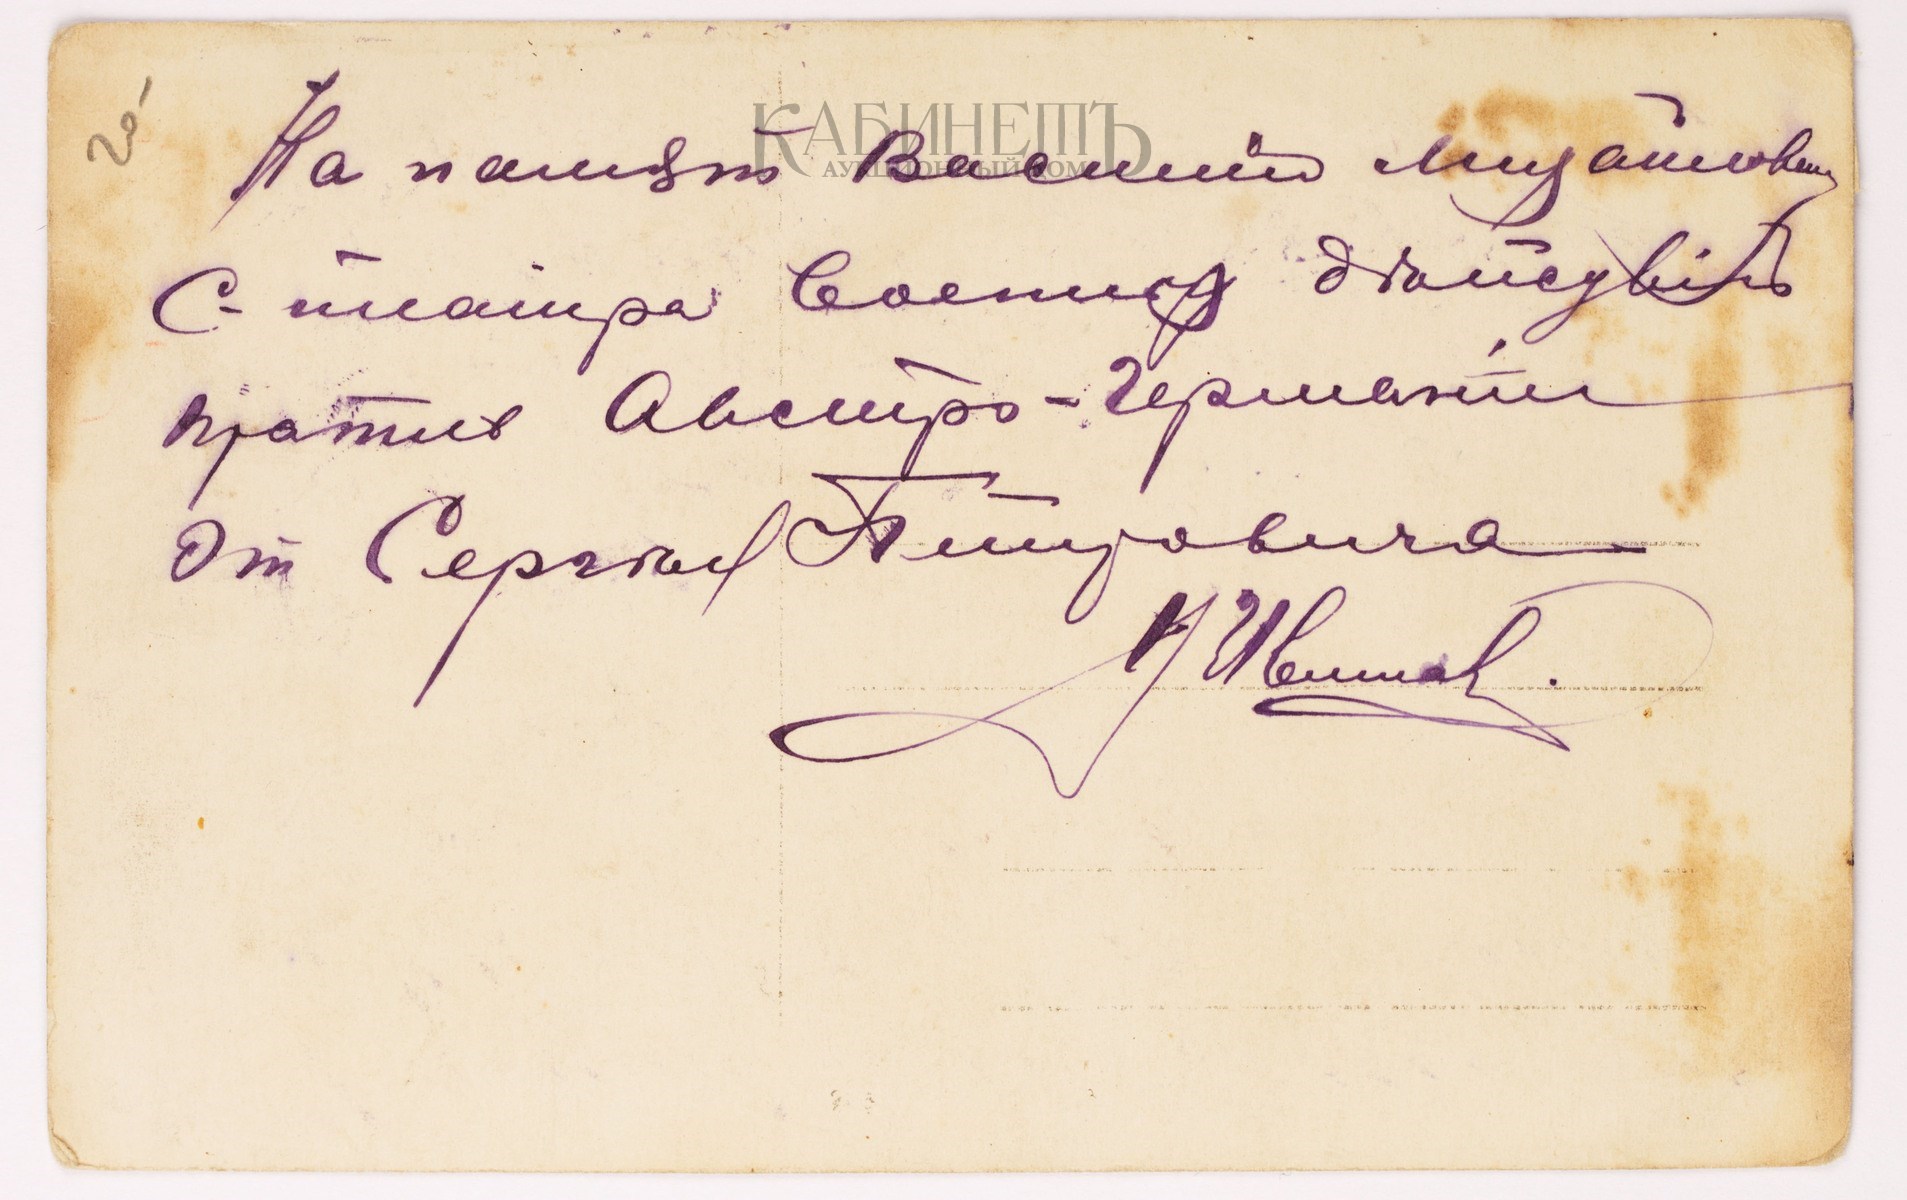 20
КАБИНЕТЪ
АУКЦИОННЫЙ ДОМ
На память Василию
С театра Военных дѣйствій
против Австро-Германии
От Сергѣя Петровича